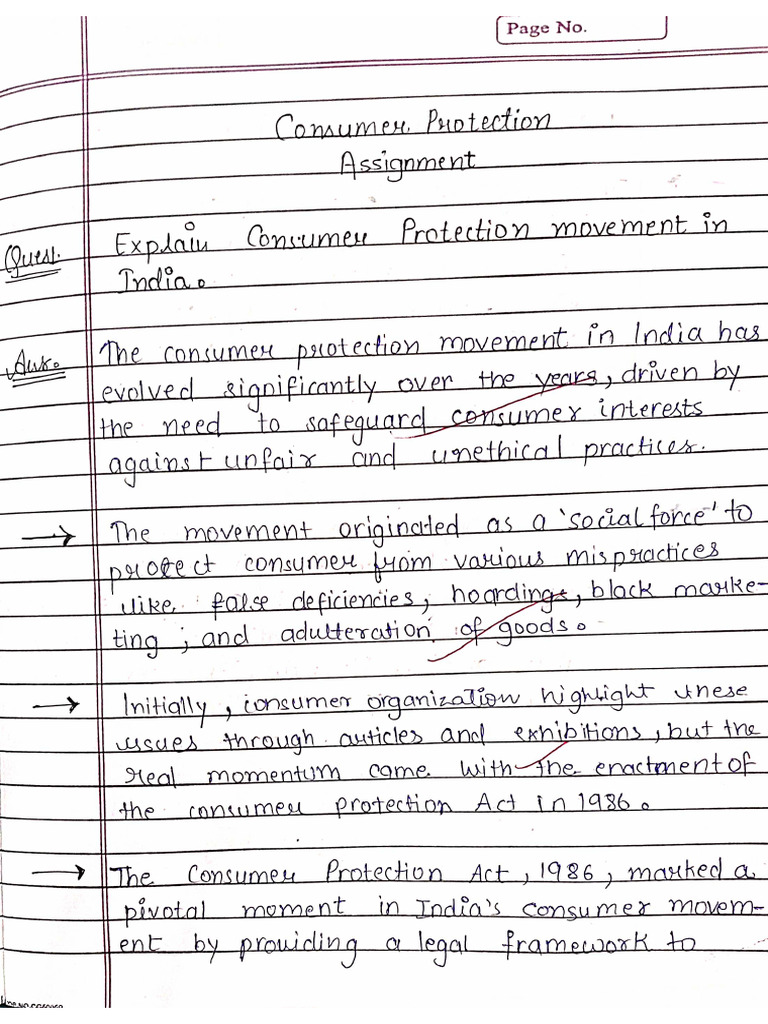 Page No.
Consumer Protection
Assignment
Quest. Explain Consumer Protection movement in
India.
Ans. The consumer protection movement in India has
evolved significantly over the years, driven by
the need to safeguard consumer interests
against unfair and unethical practices.
→ The movement originated as a 'social force' to
protect consumer from various mispractices
like false deficiencies, hoardings, black marke-
ting, and adulteration of goods.
→ Initially, consumer organization highlight these
issues through articles and exhibitions, but the
real momentum came with the enactment of
the consumer protection Act in 1986.
→ The Consumer Protection Act, 1986, marked a
pivotal moment in India's consumer movem-
ent by providing a legal framework to